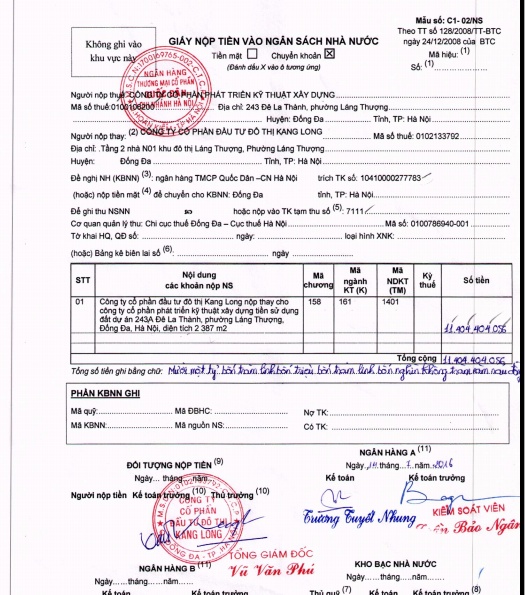 Mẫu số: C1- 02/NS
Theo TT số 128/2008/TT-BTC
ngày 24/12/2008 của BTC
Mã hiệu: (1)
Số: (1)
Không ghi vào
khu vực này
GIẤY NỘP TIỀN VÀO NGÂN SÁCH NHÀ NƯỚC
Tiền mặt Chuyển khoản X
(Đánh dấu X vào ô tương ứng)
NGÂN HÀNG
THƯƠNG MẠI CỔ PHẦN
QUỐC DÂN
CHI NHÁNH HÀ NỘI
Người nộp thuế: CÔNG TY CỔ PHẦN PHÁT TRIỂN KỸ THUẬT XÂY DỰNG
Mã số thuế: 0100106200 Địa chỉ: 243 Đê La Thành, phường Láng Thượng
Huyện: Đống Đa Tỉnh, TP: Hà Nội
Người nộp thay: (2) CÔNG TY CỔ PHẦN ĐẦU TƯ ĐÔ THỊ KANG LONG Mã số thuế: 0102133792
Địa chỉ: Tầng 2 nhà N01 khu đô thị Láng Thượng, Phường Láng Thượng
Huyện: Đống Đa Tỉnh, TP: Hà Nội
Đề nghị NH (KBNN) (3): ngân hàng TMCP Quốc Dân –CN Hà Nội trích TK số: 10410000277783
(hoặc) nộp tiền mặt (4) để chuyển cho KBNN: Đống Đa tỉnh, TP: Hà Nội
Để ghi thu NSNN hoặc nộp vào TK tạm thu số (5): 7111
Cơ quan quản lý thu: Chi cục thuế Đống Đa – Cục thuế Hà Nội Mã số: 0100786940-001
Tờ khai HQ, QĐ số: ngày: loại hình XNK:
(hoặc) Bảng kê biên lai số (6): ngày
STT Nội dung các khoản nộp NS Mã chương Mã ngành KT (K) Mã NDKT (TM) Kỳ thuế Số tiền
01 Công ty cổ phần đầu tư đô thị Kang Long nộp thay cho 158 161 1401
công ty cổ phần phát triển kỹ thuật xây dựng tiền sử dụng
đất dự án 243A Đê La Thành, phường Láng Thượng,
Đống Đa, Hà Nội, diện tích 2 387 m2 11.404.404.056
Tổng cộng 11.404.404.056
Tổng số tiền ghi bằng chữ: Mười một tỷ, bốn trăm linh bốn triệu, bốn trăm linh bốn nghìn không trăm năm sáu
PHẦN KBNN GHI
Mã quỹ: Mã ĐBHC: Nợ TK:
Mã KBNN: Mã nguồn NS: Có TK:
ĐỐI TƯỢNG NỘP TIỀN (9)
Ngày... tháng... năm...
Người nộp tiền Kế toán trưởng (10) Thủ trưởng (10)
CÔNG TY
CỔ PHẦN
ĐẦU TƯ ĐÔ THỊ
KANG LONG
TỔNG GIÁM ĐỐC
Vũ Văn Phú
NGÂN HÀNG A (11)
Ngày 14 tháng 7 năm 2016
Kế toán Kế toán trưởng
Trương Tuyết Nhung
KIỂM SOÁT VIÊN
Bảo Ngân
NGÂN HÀNG B (11)
Ngày......tháng......năm......
Kế toán Kế toán trưởng
KHO BẠC NHÀ NƯỚC
Ngày......tháng......năm......
Thủ quỹ (7) Kế toán Kế toán trưởng (8)